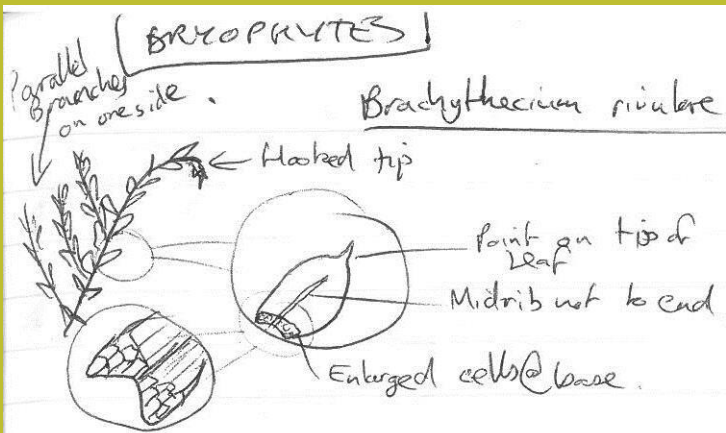 BRYOPHYTES
Parallel
Branches
on one side.
Brachythecium rivulare
Hooked tip
Point on tip of
Leaf
Midrib not to end
Enlarged cells @ base.